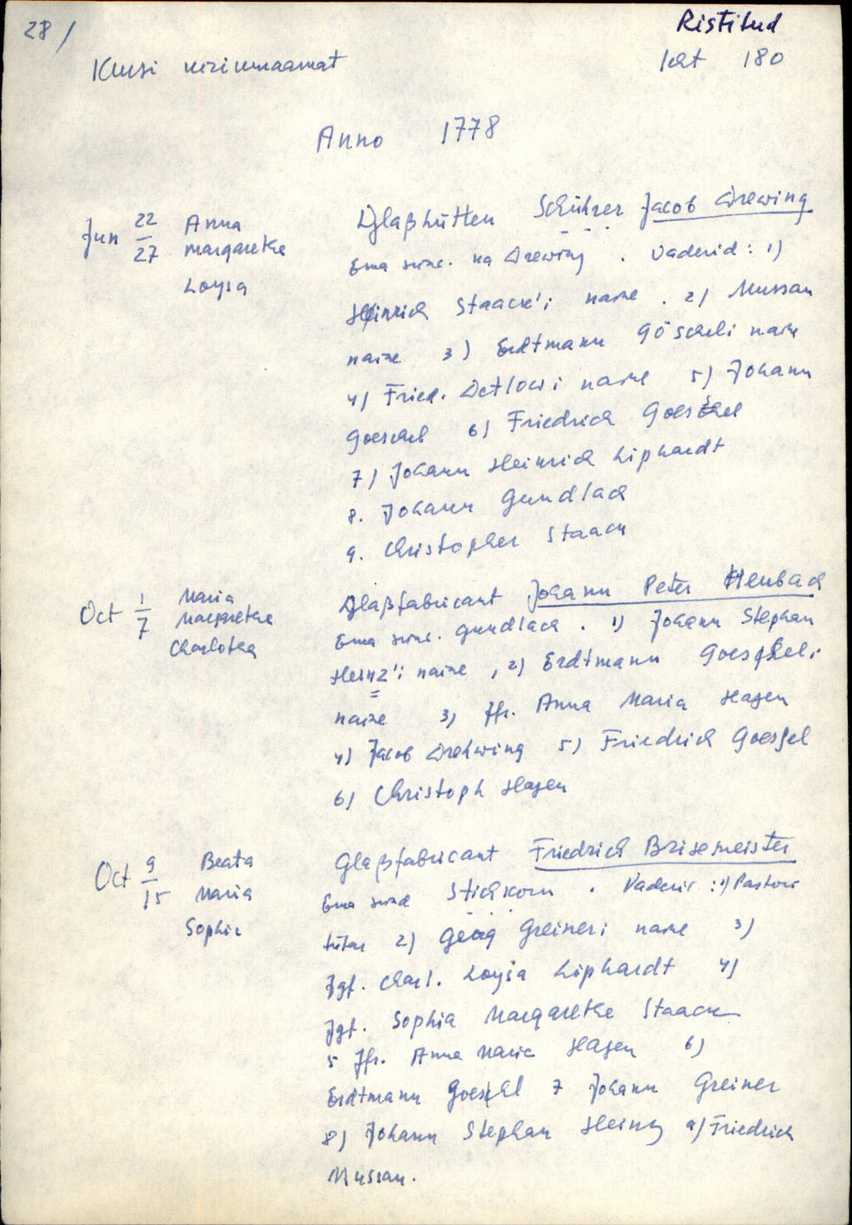 28/
Ristitud
Kursi kirikuraamat
lht 180
Anno 1778
Jun 22/27 Anna Margaretha Loysa
Glaßhütten Schührer Jacob Drewing
Ema sünd. ka Drewing. Vaderid: 1)
Heinrich Staack'i naine. 2) Mussan
naine 3) Erdtmann Göscheli naine
4) Fried. Detlowi naine 5) Johann
Goeschel 6) Friedrich Goeschel
7) Johann Heinrich Liphardt
8. Johann Gundlach
9. Christopher Staack
Oct 1/7 Maria Margaretha Charlotha
Glaßfabricant Johann Peter Heubach
Ema sünd. Gundlach. 1) Johann Stephan
Heinz'i naine, 2) Erdtmann Goescheli
naine 3) Jfr. Anna Maria Hagen
4) Jacob Drehwing 5) Friedrich Goeschel
6) Christoph Hagen
Oct 9/15 Beata Maria Sophie
Glaßfabricant Friedrich Brisemeister
Ema sünd Stichkorn. Vaderid: 1) Pastori
tütar 2) Georg Greineri naine 3)
Jgf. Charl. Loysa Liphardt 4)
Jgf. Sophia Margarethe Staack
5 Jfr. Anna Maria Hagen 6)
Erdtmann Goeschel 7 Johann Greiner
8) Johann Stephan Heintz 9) Friedrich
Mussan.